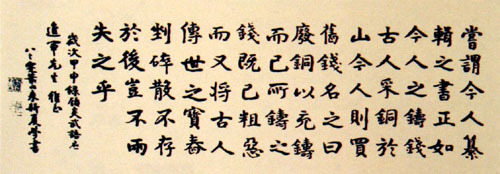 嘗謂今人纂
輯之書正如
今人之鑄錢
古人采銅於
山今人則買
舊錢名之曰
廢銅以充鑄
而已所鑄之
錢既已粗惡
而又將古人
傳世之寶舂
剉碎散不存
於後豈不兩
失之乎
歲次甲申錄顧炎武語
先生雅正